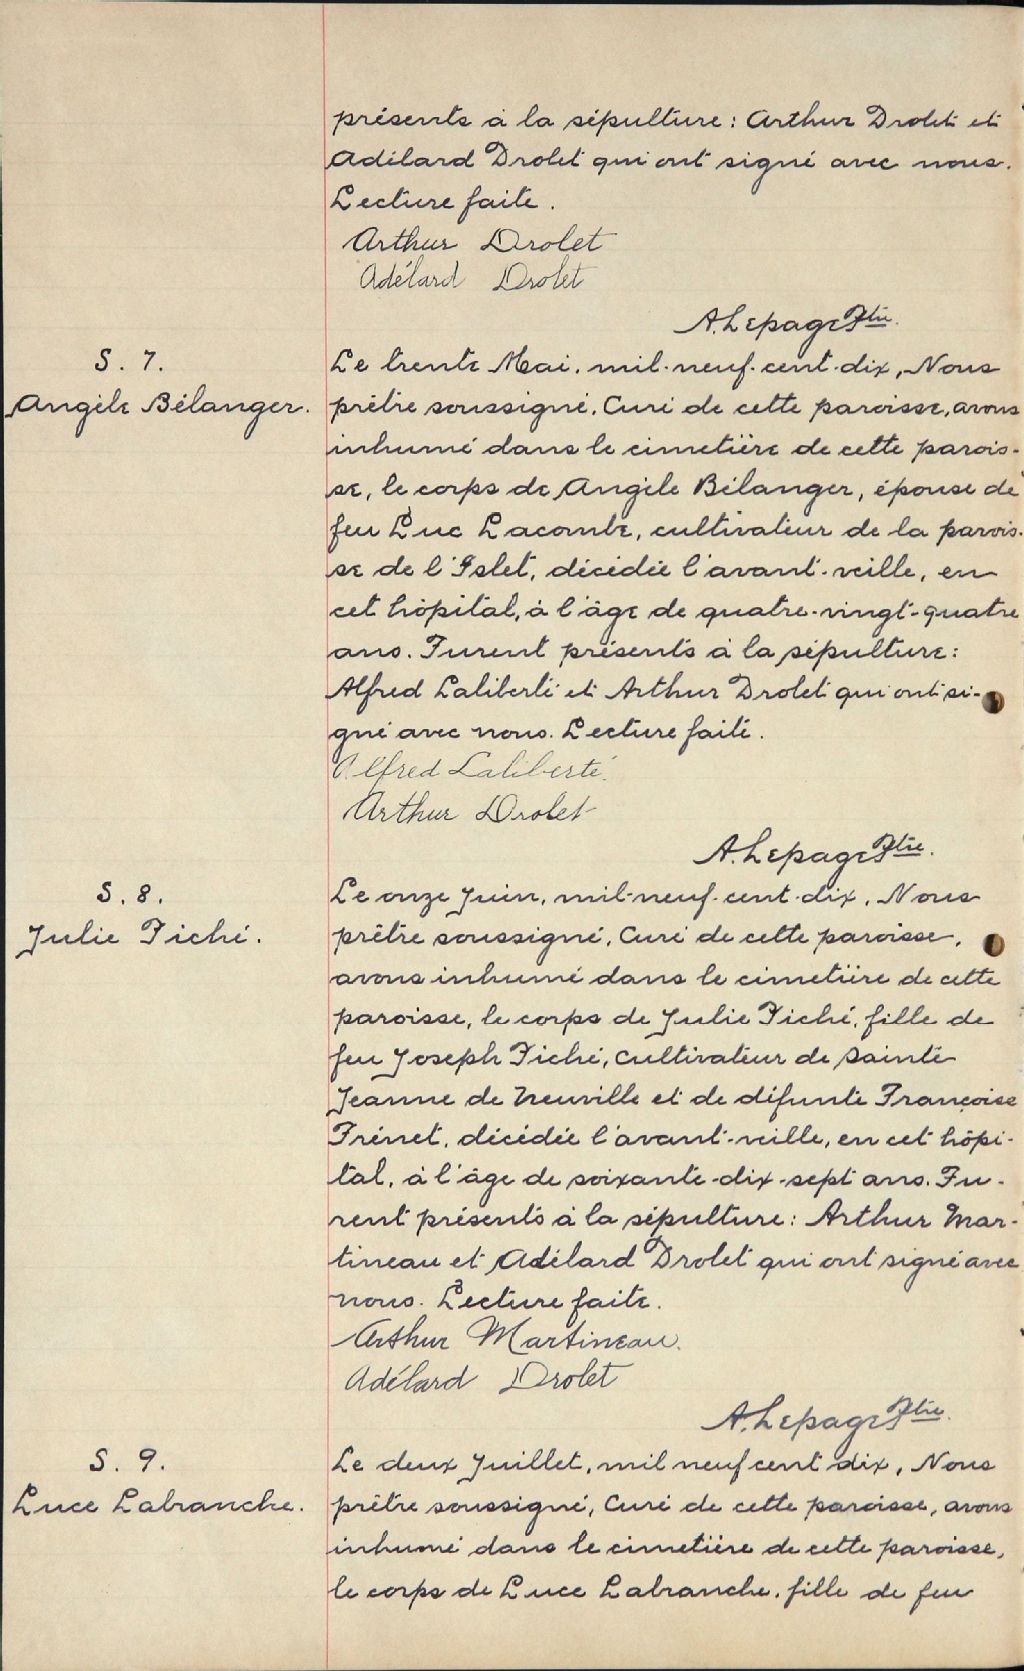 présents à la sépulture : Arthur Drolet et
Adélard Drolet qui ont signé avec nous.
Lecture faite.
Arthur Drolet
Adélard Drolet
A. Lepage Ptre.
S. 7.
Angèle Bélanger.
Le trente Mai, mil-neuf-cent-dix, Nous
prêtre soussigné, Curé de cette paroisse, avons
inhumé dans le cimetière de cette parois-
se, le corps de Angèle Bélanger, épouse de
feu Luc Lacombe, cultivateur de la parois-
se de l'Islet, décédée l'avant-veille, en
cet hôpital, à l'âge de quatre-vingt-quatre
ans. Furent présents à la sépulture :
Alfred Laliberté et Arthur Drolet qui ont si-
gné avec nous. Lecture faite.
Alfred Laliberté.
Arthur Drolet
A. Lepage Ptre.
S. 8.
Julie Fiché.
Le onze Juin, mil-neuf-cent-dix, Nous
prêtre soussigné, Curé de cette paroisse,
avons inhumé dans le cimetière de cette
paroisse, le corps de Julie Fiché, fille de
feu Joseph Fiché, cultivateur de Sainte
Jeanne de Neuville et de défunte Françoise
Frénet, décédée l'avant-veille, en cet hôpi-
tal, à l'âge de soixante-dix-sept ans. Fu-
rent présents à la sépulture : Arthur Mar-
tineau et Adélard Drolet qui ont signé avec
nous. Lecture faite.
Arthur Martineau.
Adélard Drolet
A. Lepage Ptre.
S. 9.
Luce Labranche.
Le deux Juillet, mil neuf cent dix, Nous
prêtre soussigné, Curé de cette paroisse, avons
inhumé dans le cimetière de cette paroisse,
le corps de Luce Labranche, fille de feu